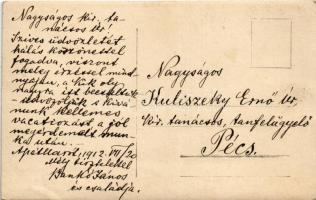 Nagyságos kir. ta-
nácsos Úr!
Szíves üdvözletét
hálás köszönettel
fogadva, viszont
meleg érzéssel mind-
nyájan, a kik oly
hányszor itt beszéltünk
üdvözöljük s kívá-
nunk kellemes
vacatiozást a jól
megérdemelt mun-
ka után.
1912. VII/20
Mély tisztelettel
Bánk János
és családja.
Nagyságos
Kuliszeky Ernő úr
kir. tanácsos, tanfelügyelő
Pécs.